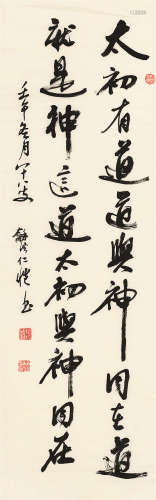 太初有道道與神同在道
就是神這道太初與神同在
壬午冬月八十叟
仁愷書